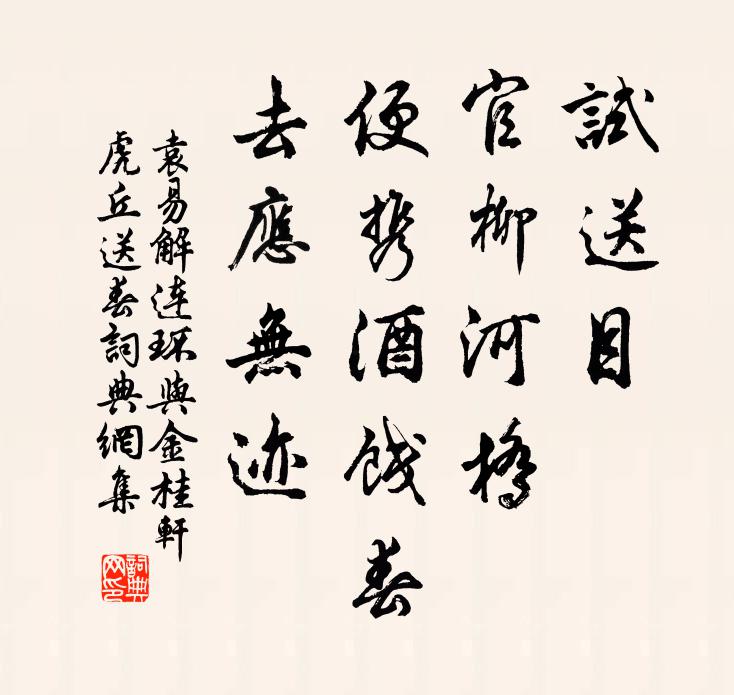 試送目
官柳河橋
便携酒餞春
去應無迹
袁易解連環與金桂軒
虎丘送春詞典網集
詞典
网印